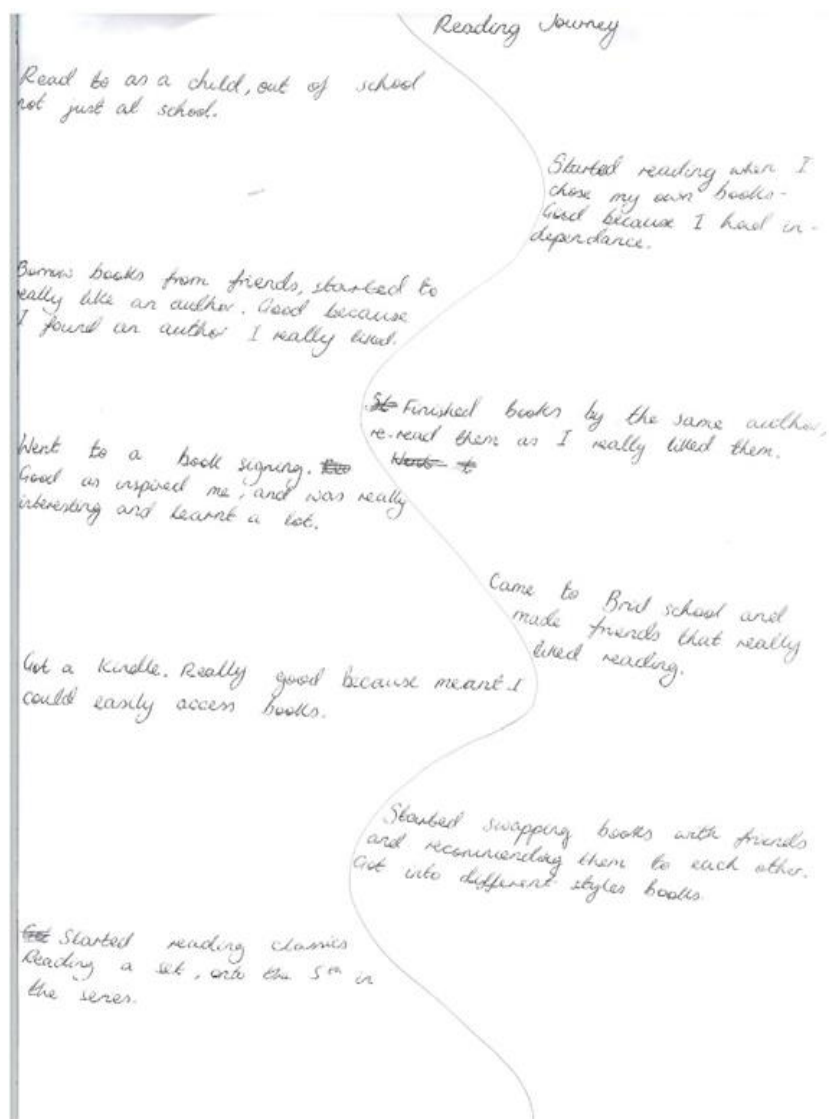 Reading Journey
Read to as a child, out of school
not just at school.
Started reading when I
chose my own books -
Good because I had in-
dependance.
Borrow books from friends, started to
really like an author. Good because
I found an author I really liked.
Finished books by the same author,
re-read them as I really liked them.
Went to a book signing.
Good as inspired me, and was really
interesting and learnt a lot.
Came to Brit school and
made friends that really
liked reading.
Got a Kindle. Really good because meant I
could easily access books.
Started swapping books with friends
and recommending them to each other.
Got into different styles books
Started reading classics
Reading a set, onto the 5th in
the series.